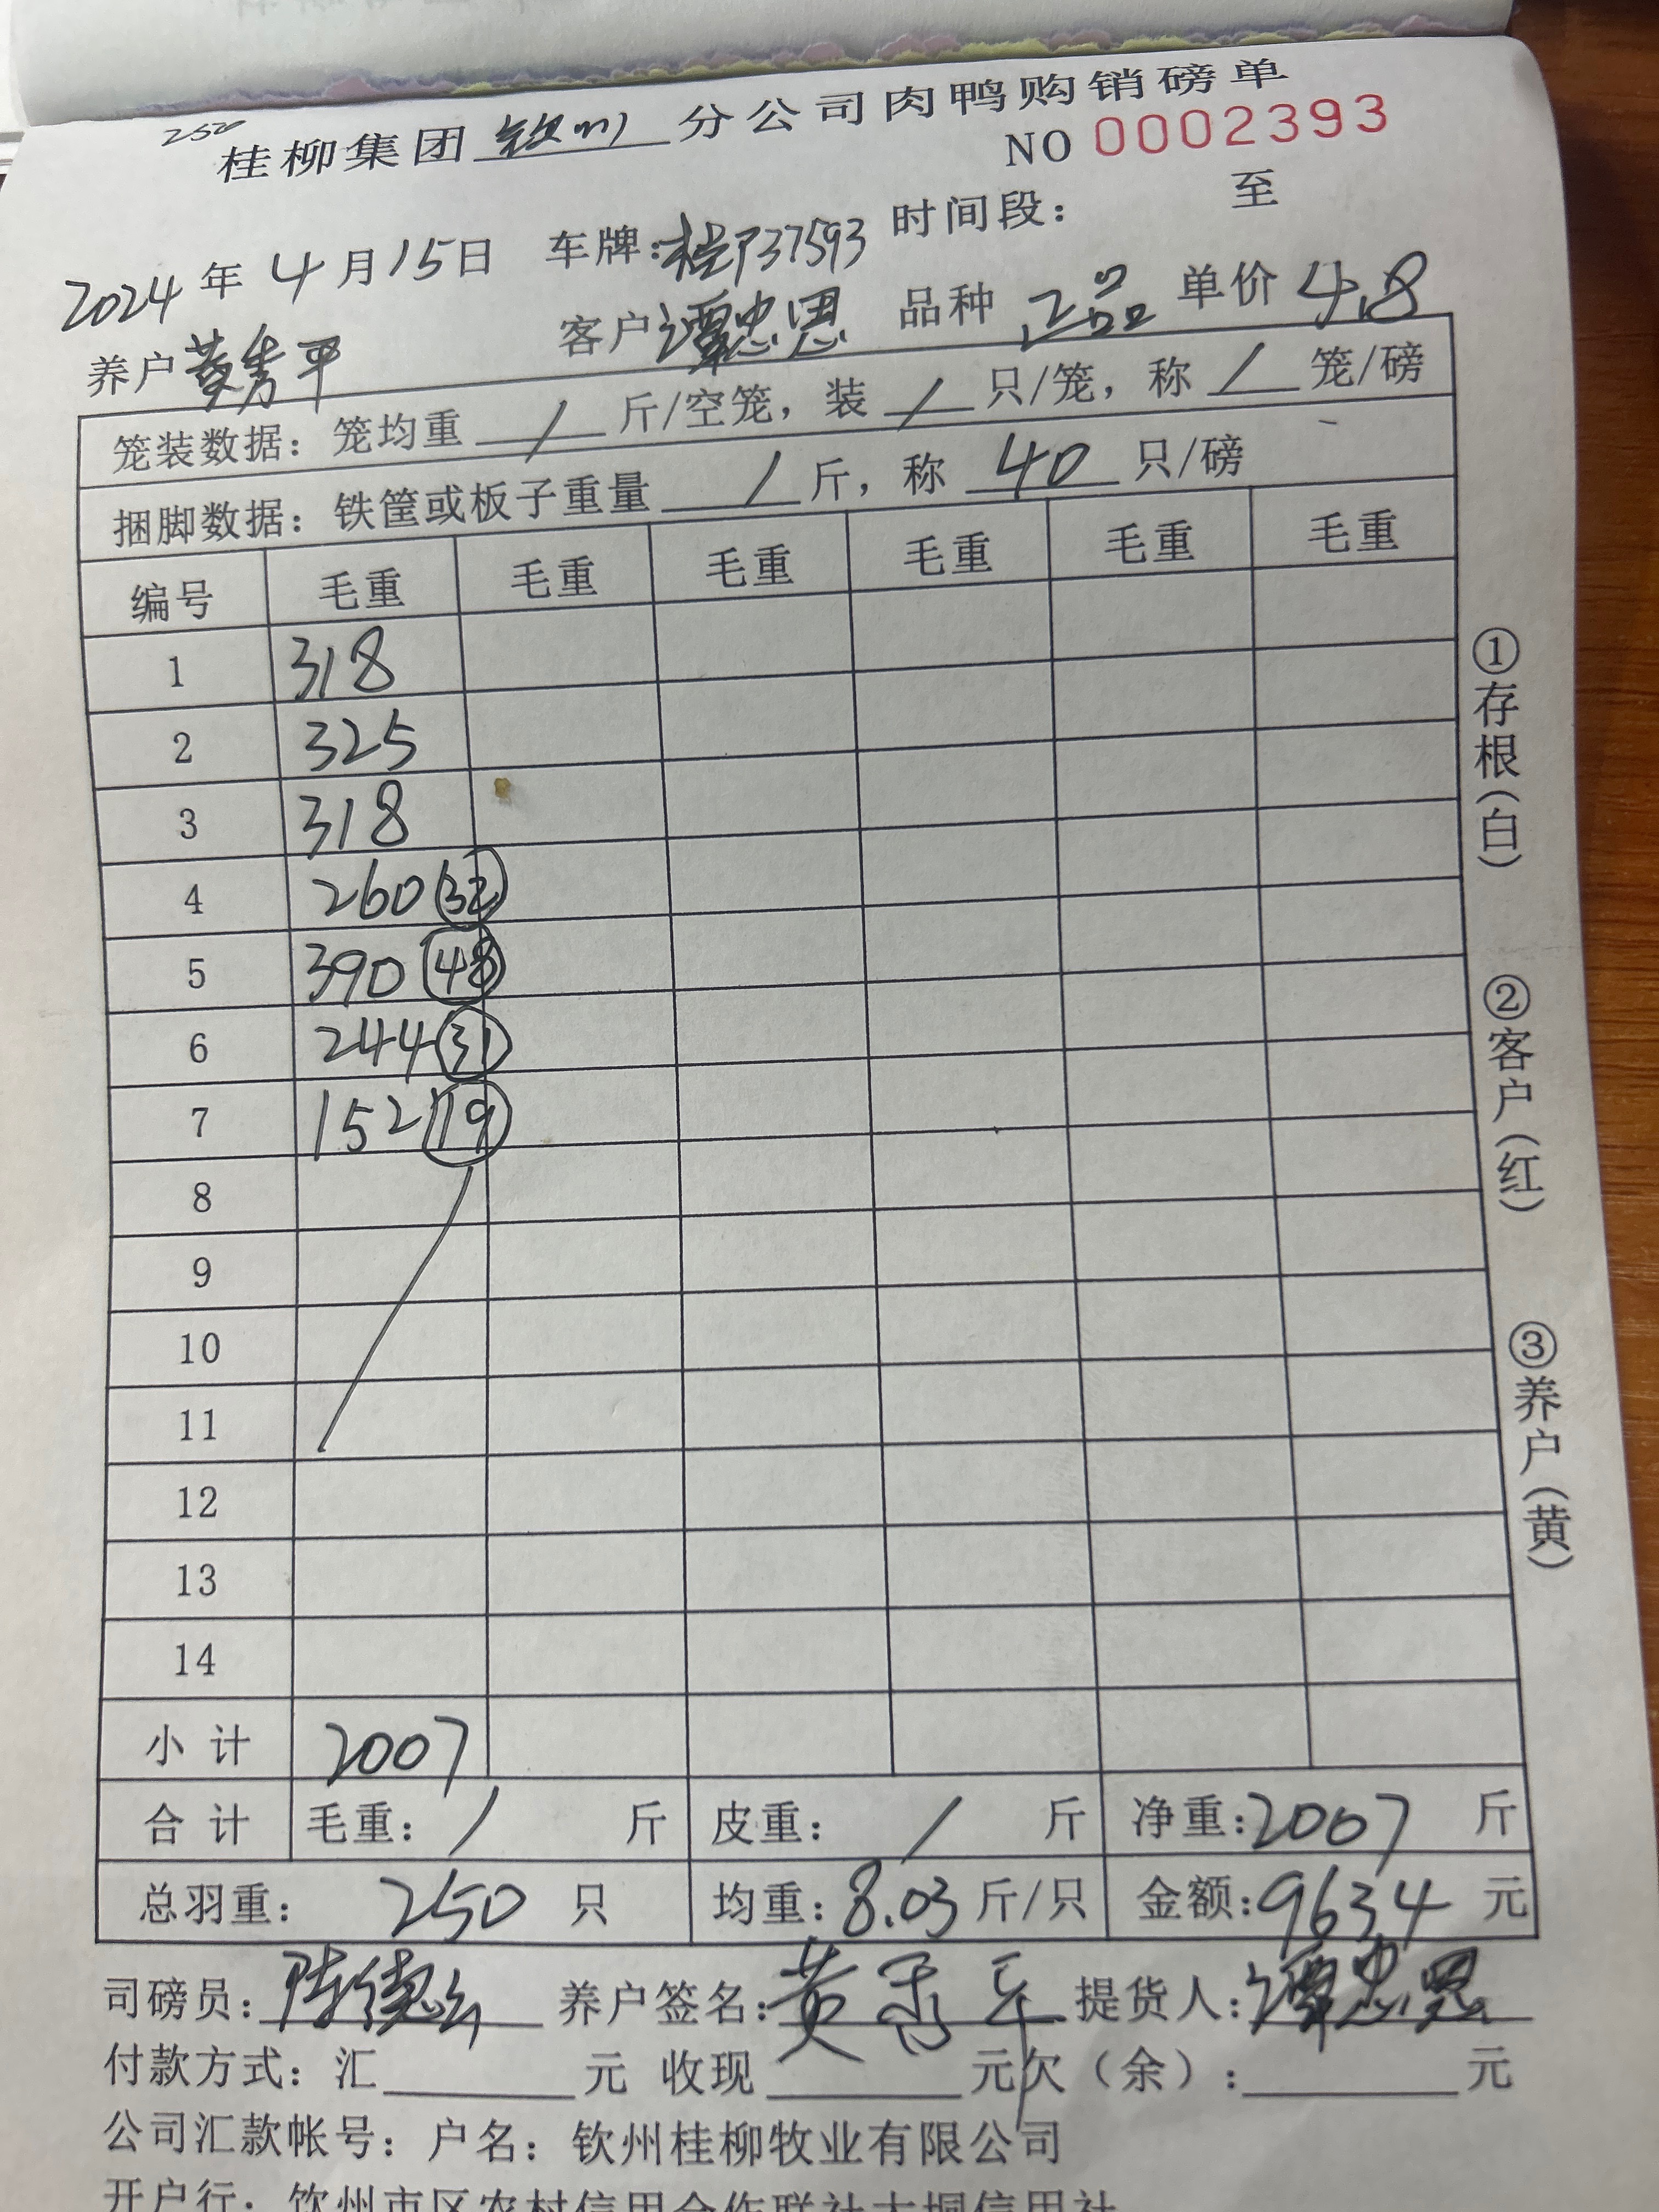 250
桂柳集团 钦州 分公司肉鸭购销磅单
NO 0002393
2024 年 4 月 15 日 车牌:桂P37593 时间段: 至
养户 黄秀平 客户 谭忠恩 品种 正品 单价 4.8
笼装数据: 笼均重 / 斤/空笼, 装 / 只/笼, 称 / 笼/磅
捆脚数据: 铁筐或板子重量 / 斤, 称 40 只/磅
编号 毛重 毛重 毛重 毛重 毛重 毛重
1 318
2 325
3 318
4 260 32
5 390 48
6 244 31
7 152 19
8
9
10
11
12
13
14
小计 2007
合计 毛重: / 斤 皮重: / 斤 净重:2007 斤
总羽重: 250 只 均重:8.03 斤/只 金额:9634 元
司磅员: 陈德 养户签名: 黄秀平 提货人: 谭忠恩
付款方式: 汇 元 收现 元 欠(余): 元
公司汇款帐号: 户名: 钦州桂柳牧业有限公司
开户行: 钦州市区农村信用合作联社大垌信用社
①存根(白)
②客户(红)
③养户(黄)